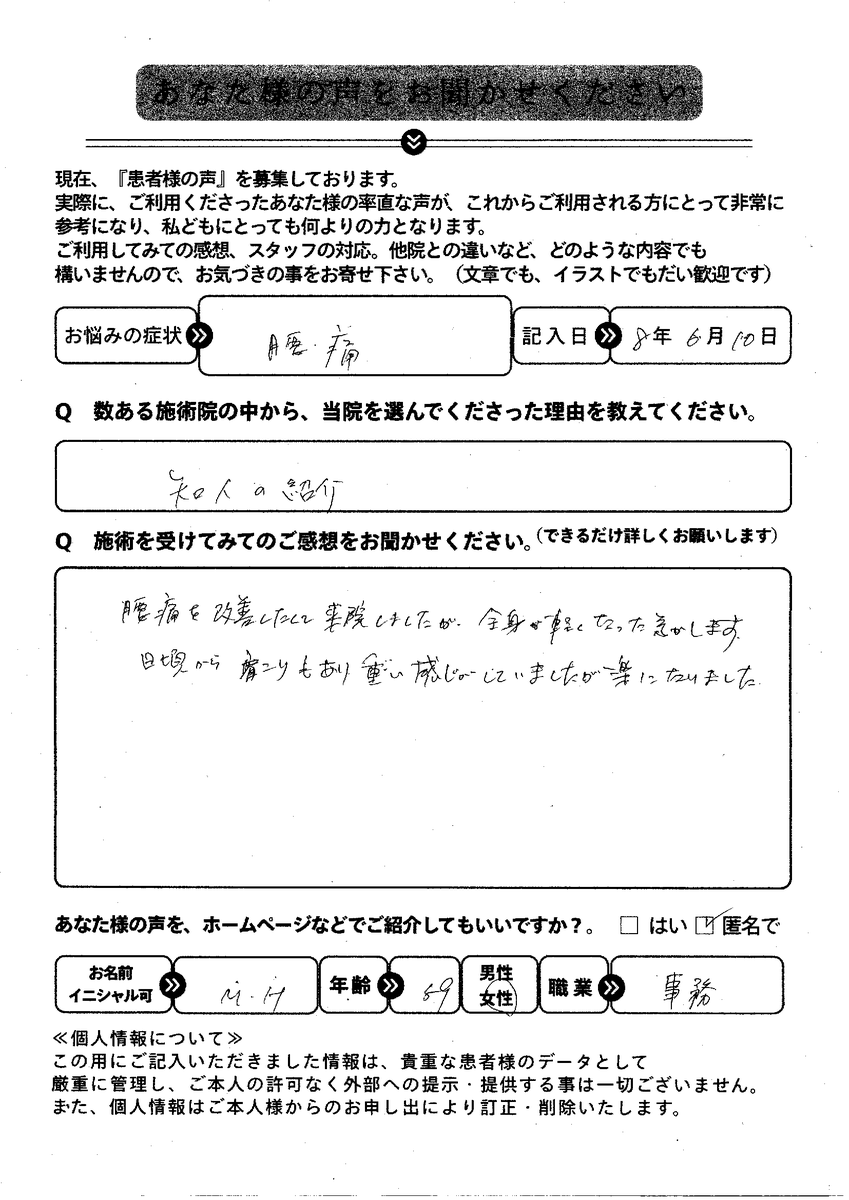 あなた様の声をお聞かせください
現在、『患者様の声』を募集しております。
実際に、ご利用くださったあなた様の率直な声が、これからご利用される方にとって非常に
参考になり、私どもにとっても何よりの力となります。
ご利用してみての感想、スタッフの対応。他院との違いなど、どのような内容でも
構いませんので、お気づきの事をお寄せ下さい。（文章でも、イラストでもだい歓迎です）
お悩みの症状 腰痛 記入日 8年 6月10日
Q 数ある施術院の中から、当院を選んでくださった理由を教えてください。
知人の紹介
Q 施術を受けてみてのご感想をお聞かせください。（できるだけ詳しくお願いします）
腰痛を改善したくて来院しましたが、全身が軽くなった気がします。
日頃から肩こりもあり重い感じがしていましたが楽になりました。
あなた様の声を、ホームページなどでご紹介してもいいですか？。 □ はい ☑ 匿名で
お名前 イニシャル可 M.H 年齢 59 男性 女性 職業 事務
≪個人情報について≫
この用にご記入いただきました情報は、貴重な患者様のデータとして
厳重に管理し、ご本人の許可なく外部への提示・提供する事は一切ございません。
また、個人情報はご本人様からのお申し出により訂正・削除いたします。